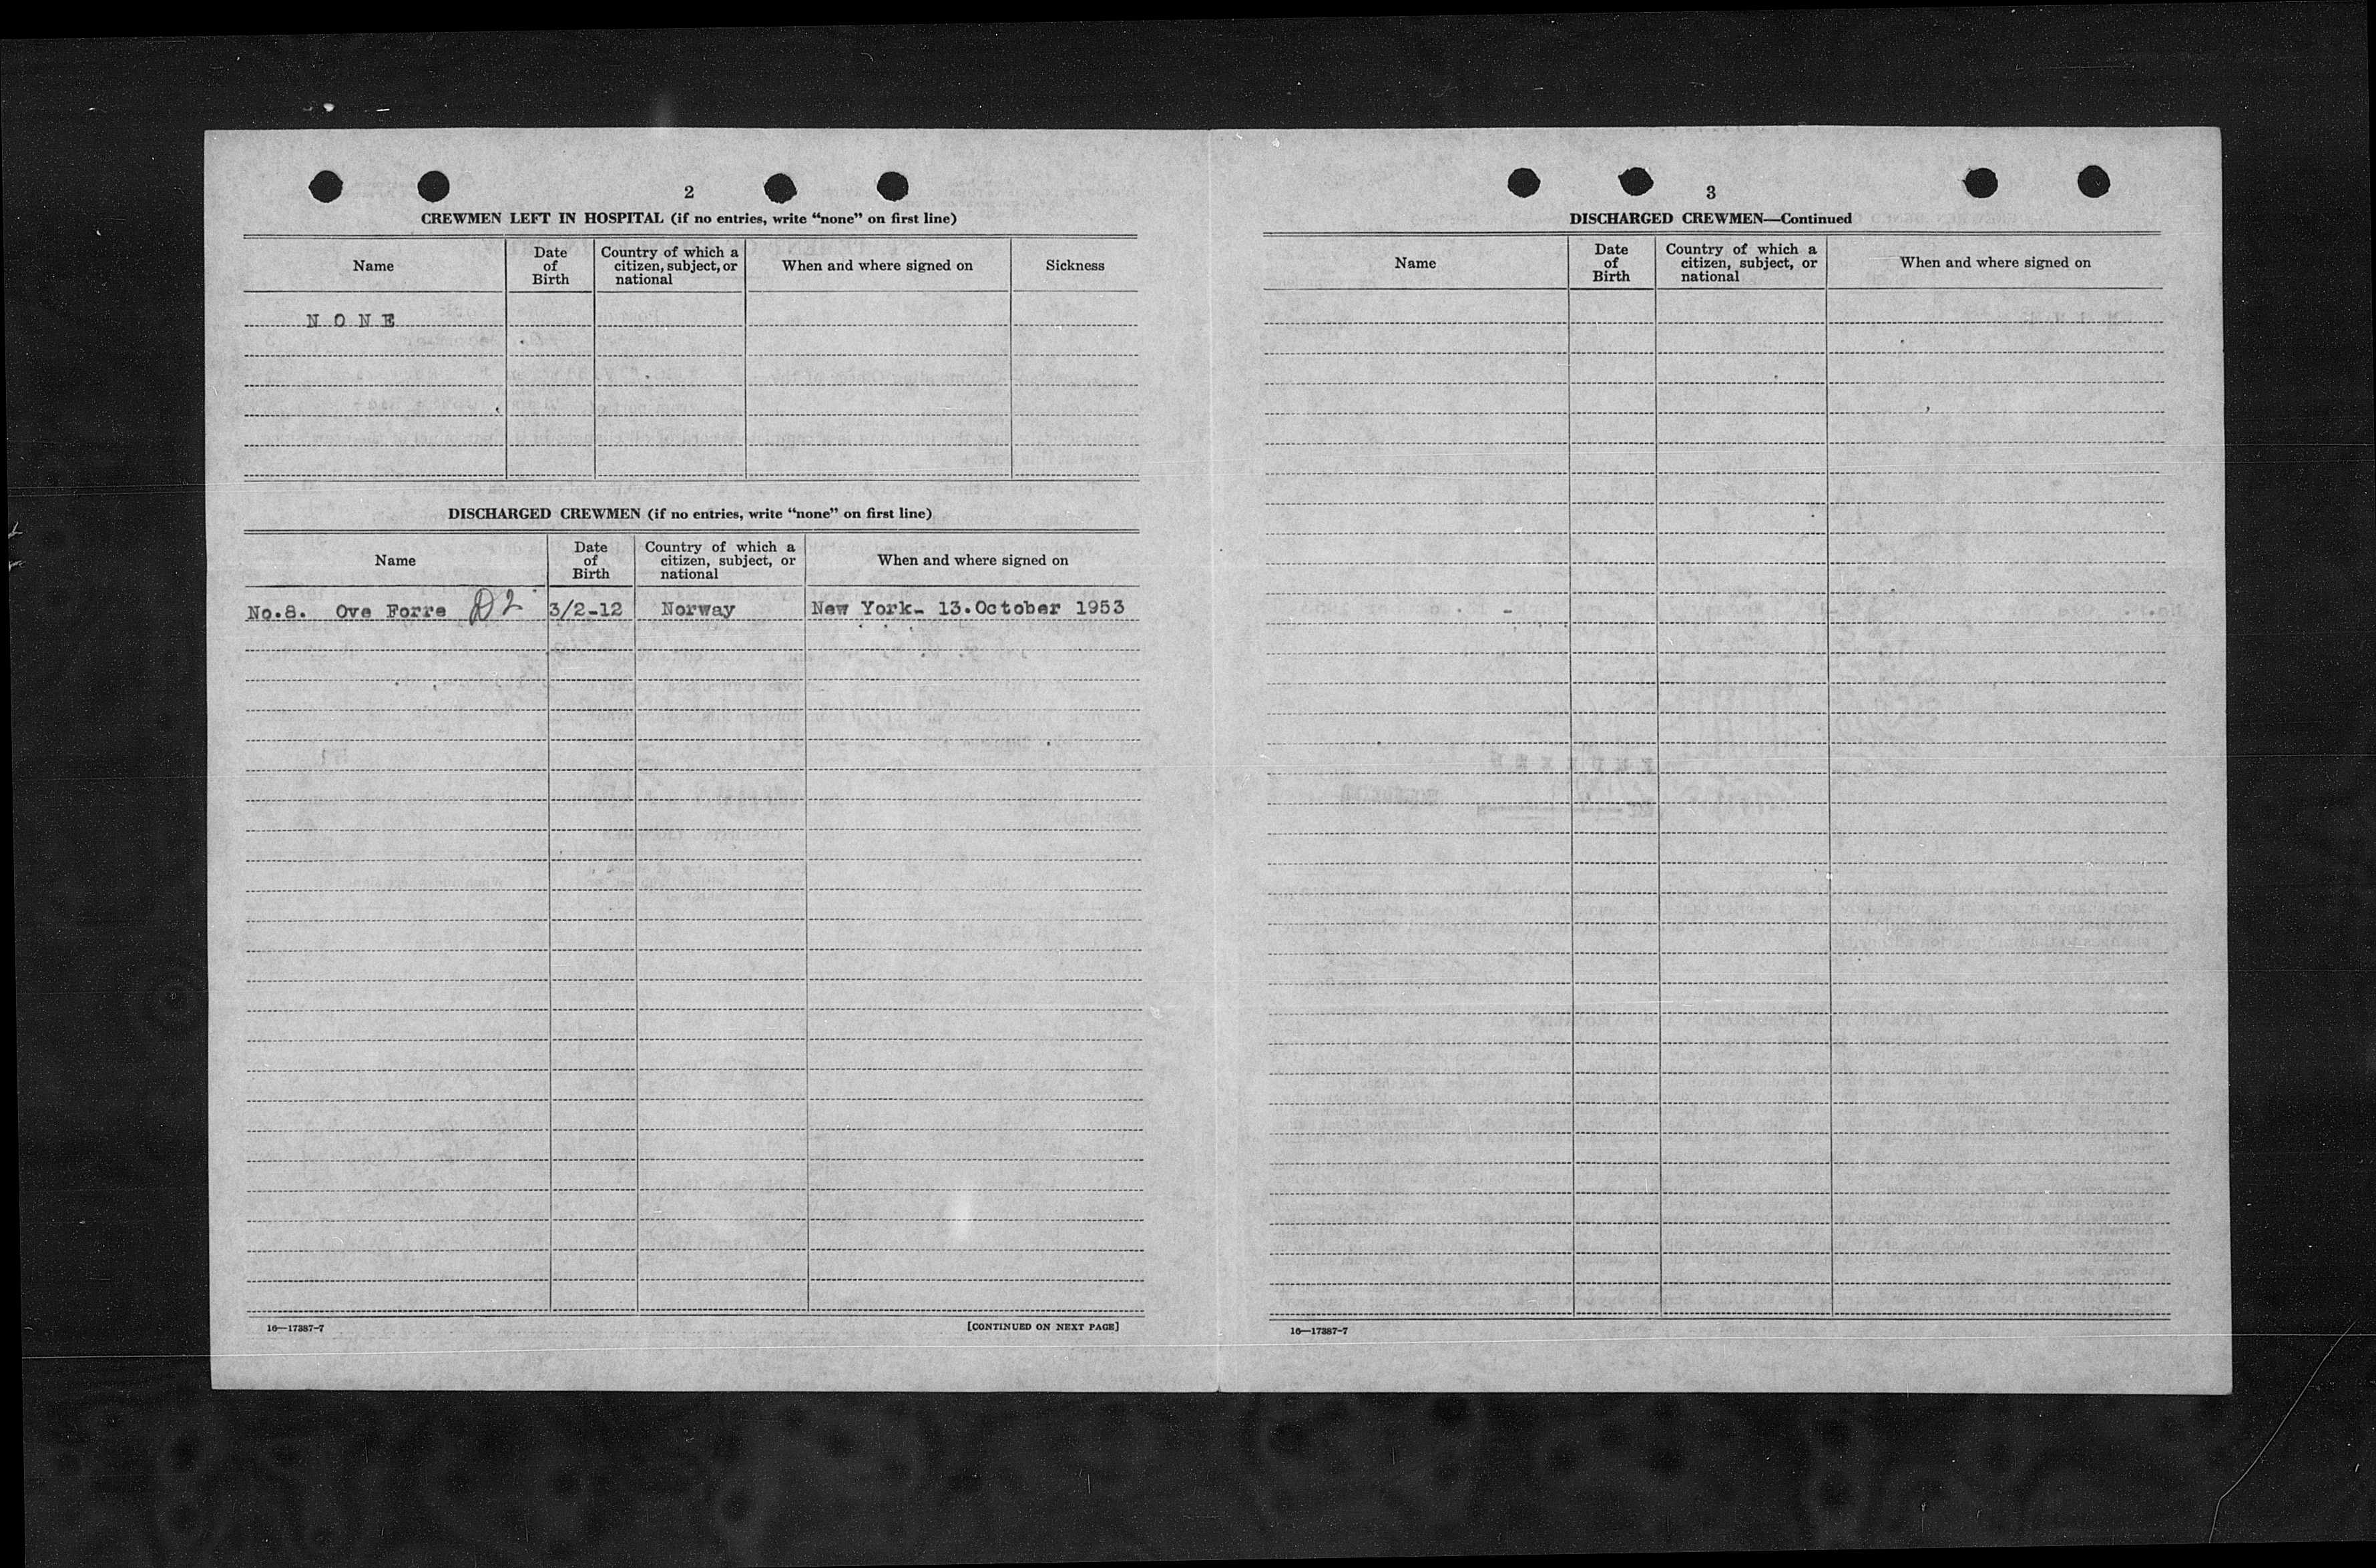 2
CREWMEN LEFT IN HOSPITAL (if no entries, write “none” on first line)
Name
Date of Birth
Country of which a citizen, subject, or national
When and where signed on
Sickness
N O N E
DISCHARGED CREWMEN (if no entries, write “none” on first line)
Name
Date of Birth
Country of which a citizen, subject, or national
When and where signed on
No.8. Ove Forre D2 3/2-12 Norway New York- 13.October 1953
16—17387-7
[CONTINUED ON NEXT PAGE]
3
DISCHARGED CREWMEN—Continued
Name
Date of Birth
Country of which a citizen, subject, or national
When and where signed on
16—17387-7